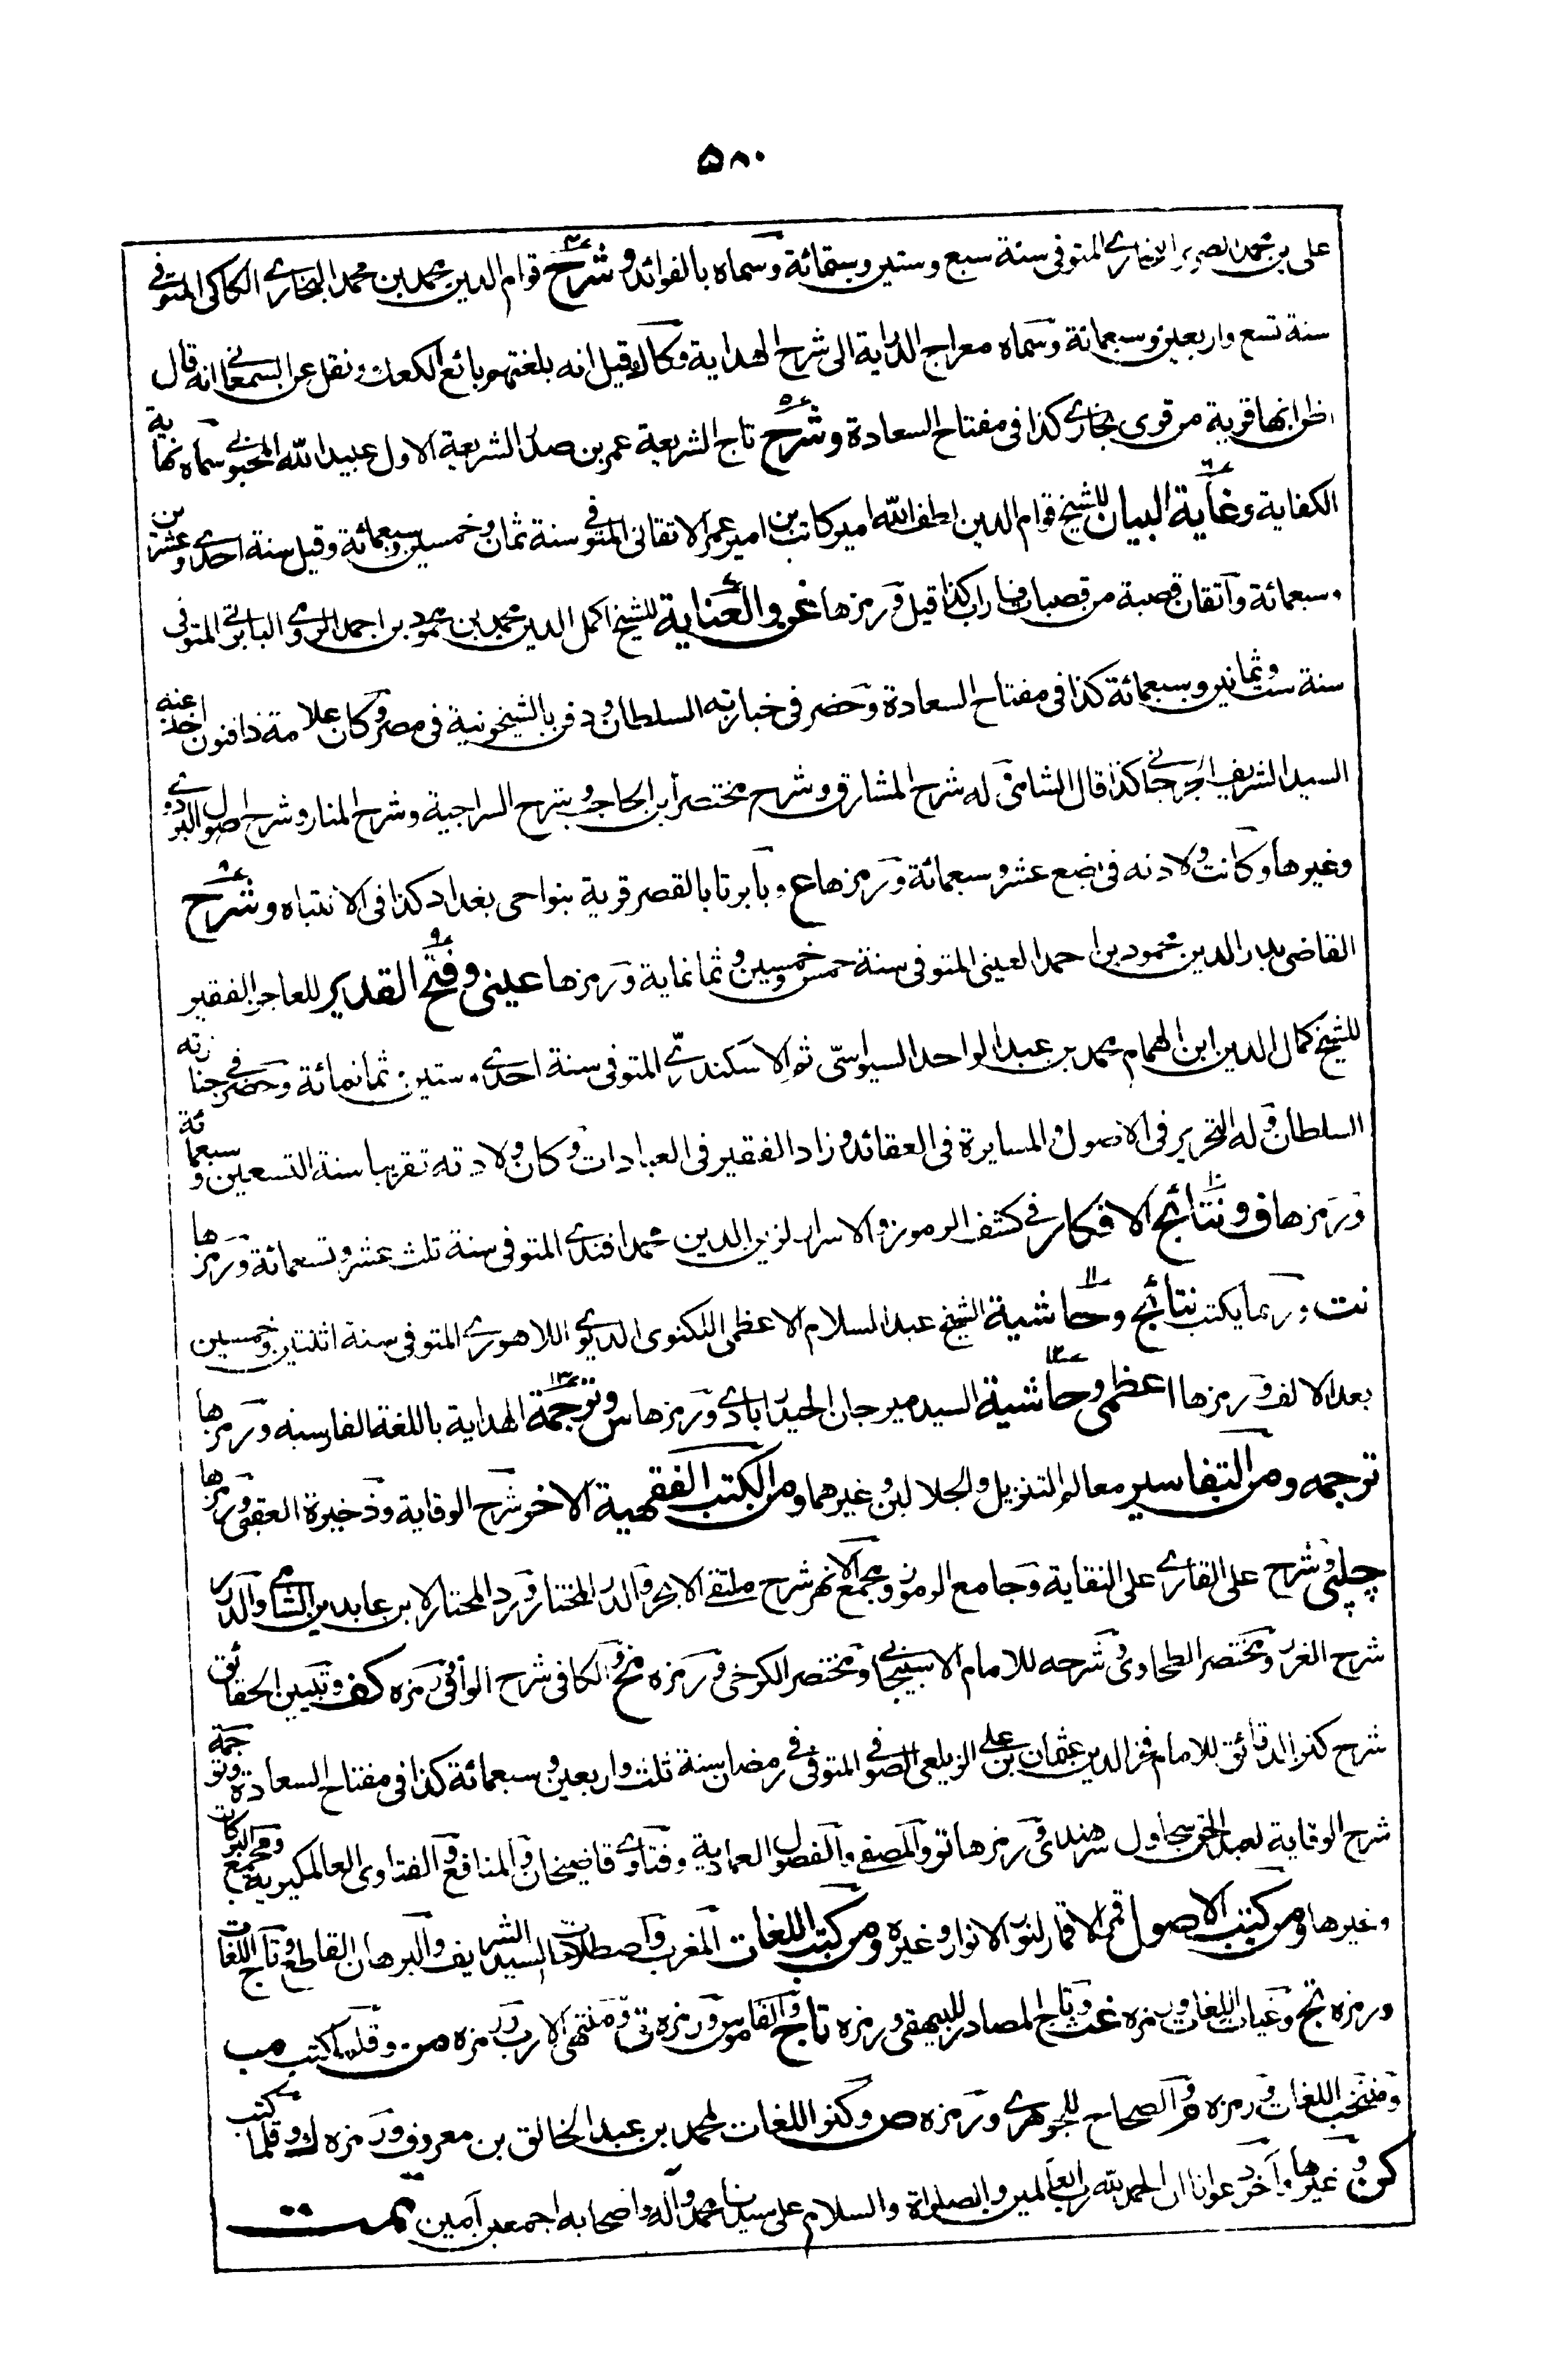 ٥٨٠
على بن محمد الضرير البخاري المتوفى سنة سبع وستين وستمائة وسماه بالفوائد وشرح قوام الدين محمد بن محمد البخاري الكاكي المتوفى
سنة تسع واربعين وسبعمائة وسماه معراج الدراية الى شرح الهداية وكاك قيل انه بلغتهم بائع الكعك ونقل عن السمعاني انه قال
اظن انها قرية من قرى بخارى كذا في مفتاح السعادة وشرح تاج الشريعة عمر بن صدر الشريعة الاول عبيد الله المحبوبي سماه نهاية
الكفاية وغاية البيان للشيخ قوام الدين لطف الله امير كاتب بن امير عمر الاتقاني المتوفى سنة ثمان وخمسين وسبعمائة وقيل سنة احدى وعشرين
وسبعمائة وآتقان قصبة من قصبات فاراب كذا قيل ورمزها غى والعناية للشيخ اكمل الدين محمد بن محمود بن احمد الرومي البابرتي المتوفى
سنة ست وثمانين وسبعمائة كذا في مفتاح السعادة وحضر في خبازته السلطان ودفن بالشيخونية في مصر وكان علامة ذا فنون اخذ عنه
السيد الشريف الجرجاني كذا قال الشامي له شرح المشارق وشرح مختصر ابن الحاجب وشرح السراجية وشرح المنار وشرح اصول البزدوي
وغيرها وكانت ولادته في بضع عشر وسبعمائة ورمزها ع وبابرتا بالقصر قرية بنواحي بغداد كذا في الانتباه وشرح
القاضي بدر الدين محمود بن احمد العيني المتوفى سنة خمس وخمسين وثمانماية ورمزها عيني وفتح القدير للعاجز الفقير
للشيخ كمال الدين ابن الهمام محمد بن عبد الواحد السيواسي ثم الاسكندري المتوفى سنة احدى وستين وثمانمائة وحضر في جنازته
السلطان وله التحرير في الاصول والمسايرة في العقائد وزاد الفقير في العبادات وكان ولادته تقريبا سنة التسعين وسبعمائة
ورمزها ف ونتائج الافكار في كشف الرموز والاسرار لزين الدين محمد افندي المتوفى سنة ثلث عشر وتسعمائة ورمزها
نت وربما يكتب نتائج وحاشية الشيخ عبد السلام الاعظمي اللكنوي الديوي اللاهوري المتوفى سنة اثنتين وخمسين
بعد الالف ورمزها اعظمي وحاشية السيد مير جان الحيدرابادي ورمزها س وترجمة الهداية باللغة الفارسية ورمزها
ترجمه ومن التفاسير معالم التنزيل والجلالين وغيرهما ومن الكتب الفقهية الاخر شرح الوقاية وذخيرة العقبى ورمزها
چلپي وشرح على القاري على النقاية وجامع الرموز ومجمع الانهر شرح ملتقى الابحر والدر المختار ورد المحتار لابن عابدين الشامي والدرر
شرح الغرر ومختصر الطحاوي وشرحه للامام الاسبيجابي ومختصر الكرخي ورمزه مخ والكافي شرح الوافي ورمزه كف وتبيين الحقائق
شرح كنز الدقائق للامام فخر الدين عثمان بن علي الزيلعي الصوفي المتوفى في رمضان سنة ثلث واربعين وسبعمائة كذا في مفتاح السعادة وترجمة
شرح الوقاية لعبد الحق سجاول سرهندي ورمزها تو والمصفى والفصول العمادية وفتاوى قاضيخان والمنافع والفتاوى العالمكيرية ومجمع البركات
وغيرها ومن كتب الاصول قمر الاقمار لنور الانوار وغيره ومن كتب اللغات المغرب واصطلاحات السيد الشريف والبرهان القاطع وتاج اللغات
ورمزه تج وغياث اللغات ورمزه غث وتاج المصادر للبيهقي ورمزه تاج والقاموس ورمزه ق ومنتهى الارب ورمزه من وقلما كتب مب
ومنتخب اللغات ورمزه م والصحاح للجوهري ورمزه ص وكنز اللغات لمحمد بن عبد الخالق بن معروف ورمزه ك وقلما كتب
كن وغيرها وآخر دعوانا ان الحمد لله رب العالمين والصلواة والسلام على سيدنا محمد وآله واصحابه اجمعين آمين تمت